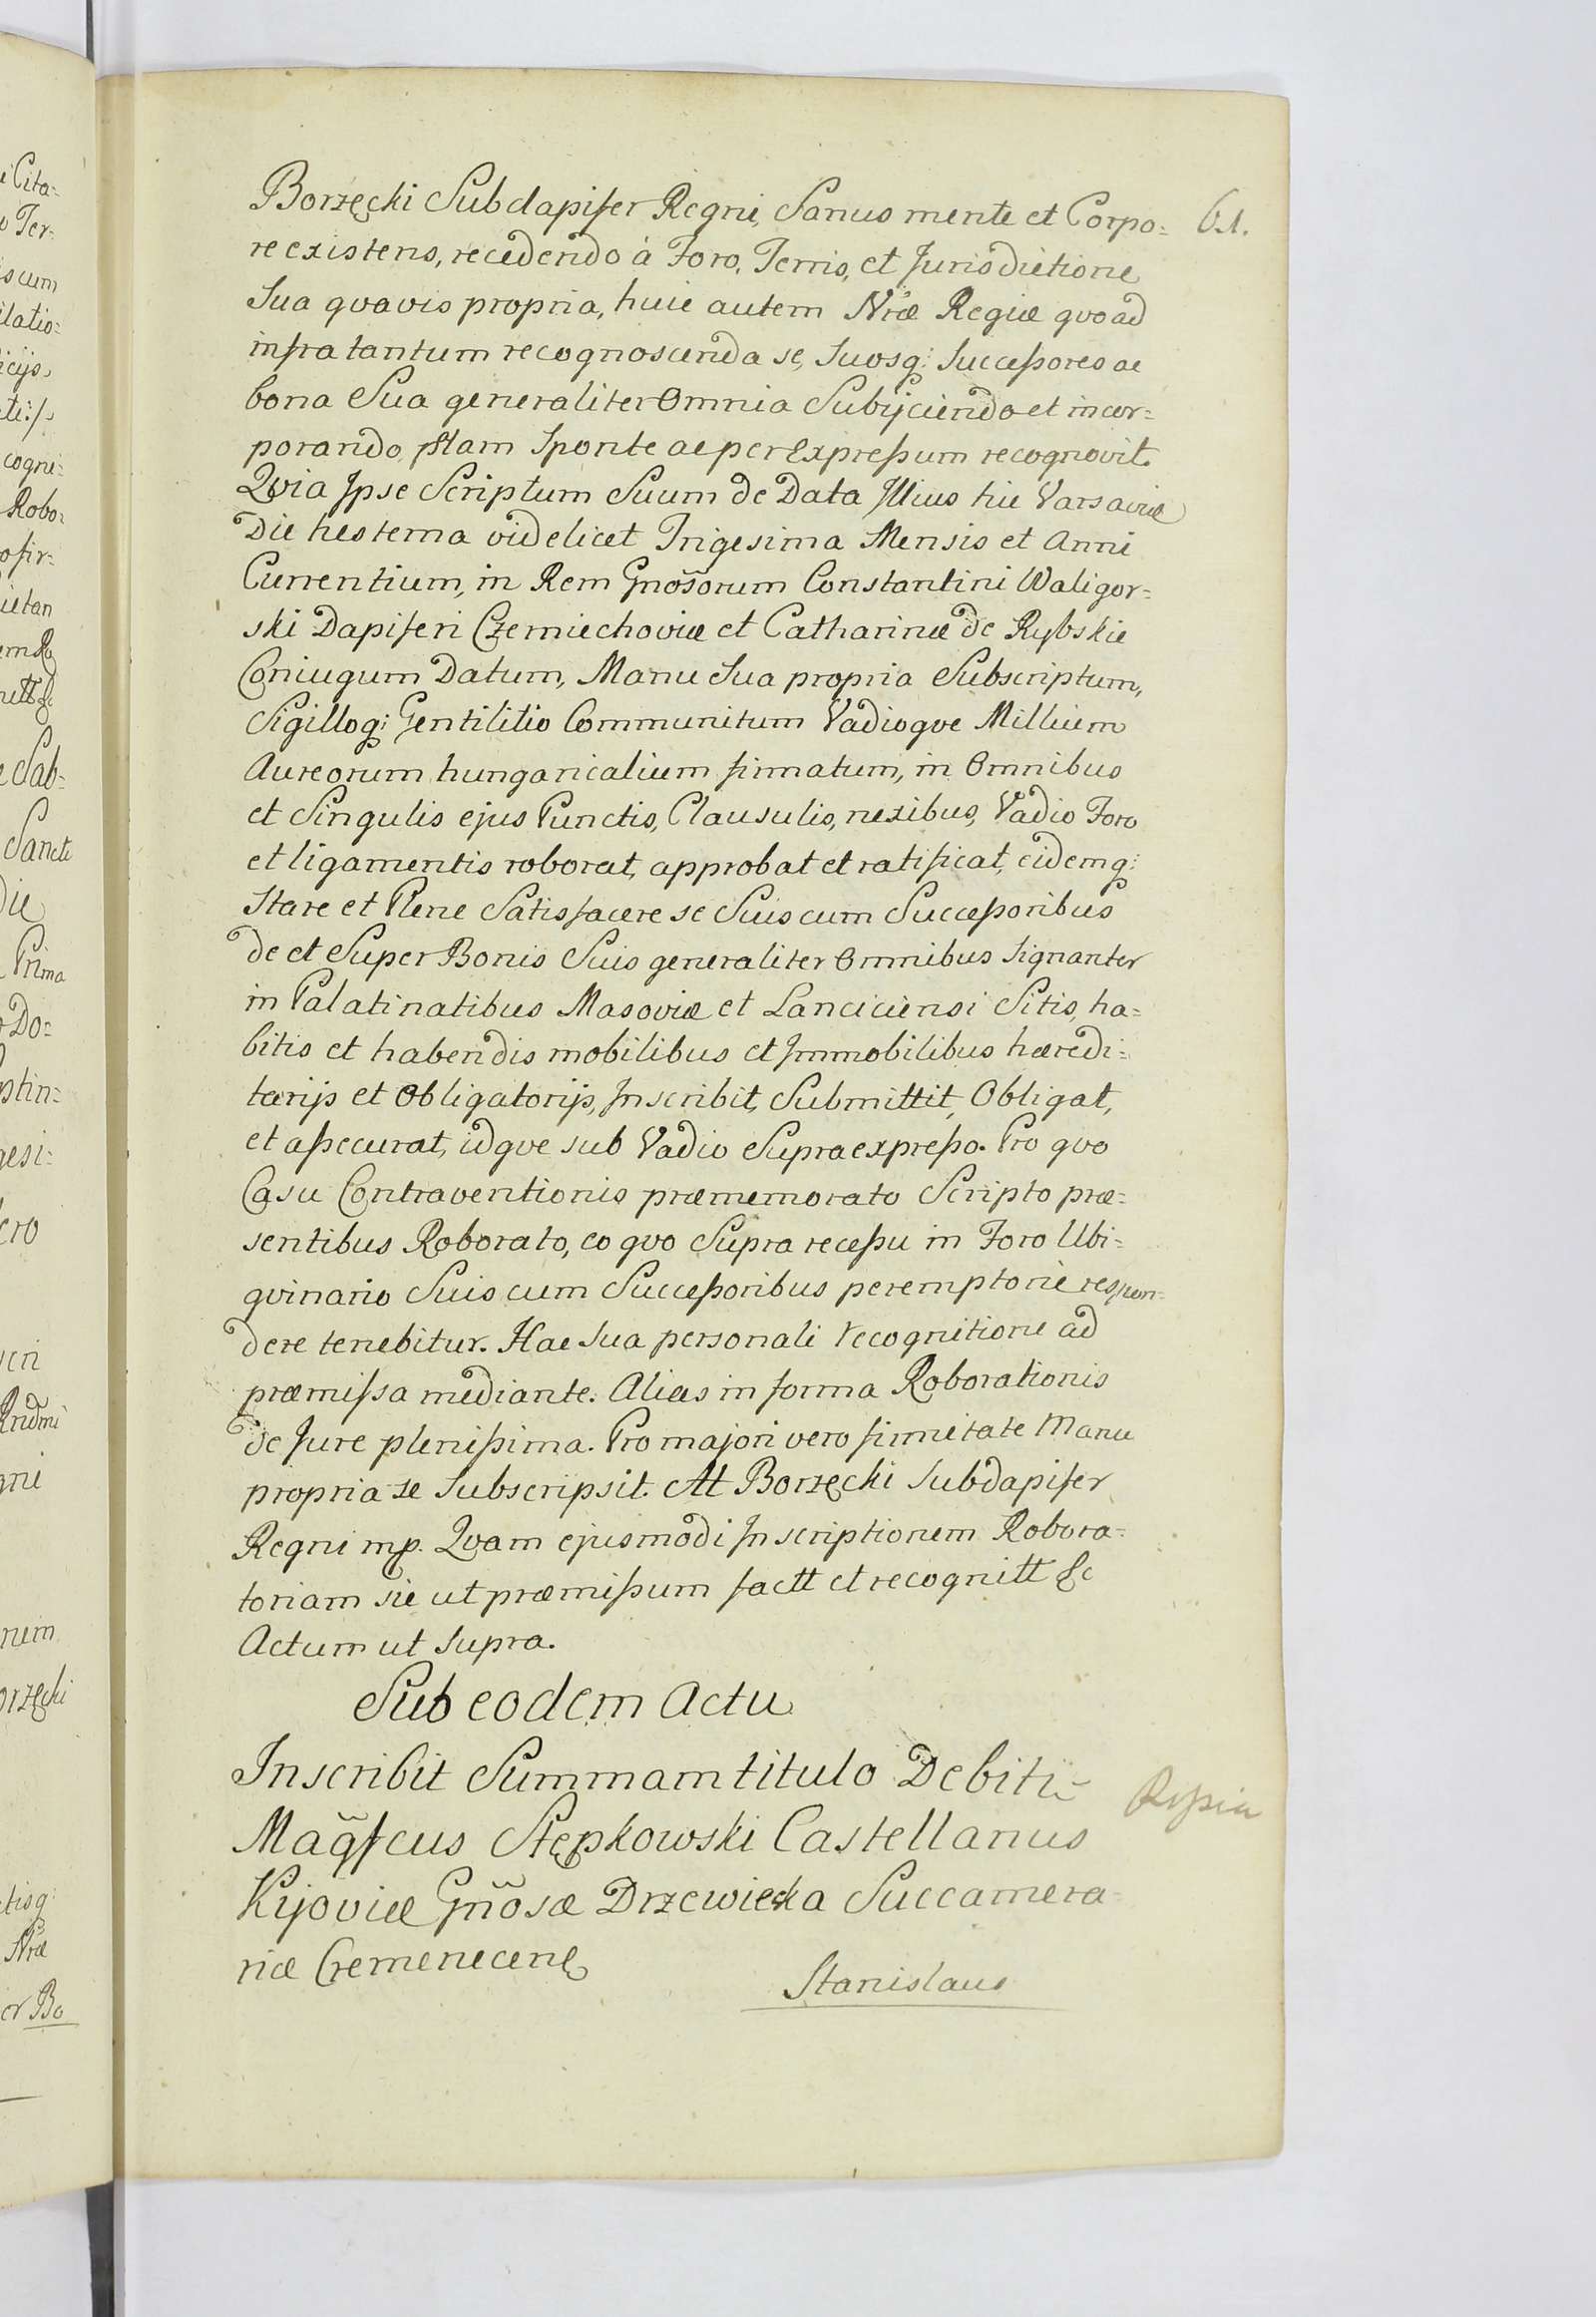 61.
Borzęcki Subdapifer Regni, Sanus mente et Corpo=
re existens, recedendo à Foro, Terris, et Jurisdictione
Sua qvavis propria, huic autem Nræ Regiæ qvoad
infra tantum recognoscenda se, Suosq; Successores ac
bona Sua generaliter Omnia Subijciendo et incor=
porando, palam Sponte ac per Expressum recognovit.
Qvia Ipse Scriptum Suum de Data Illius hic Varsaviæ
Die hesterna videlicet Trigesima Mensis et Anni
Currentium, in Rem Gnosorum Constantini Waligor=
ski Dapiferi Czerniechoviæ et Catharinæ de Rybskie
Coniugum Datum, Manu Sua propria Subscriptum,
Sigilloq; Gentilitio Communitum Vadioqve Millium
Aureorum hungaricalium firmatum, in Omnibus
et Singulis ejus Punctis, Clausulis, nexibus, Vadio Foro
et ligamentis roborat, approbat et ratificat, eidemq;
Stare et Plene Satisfacere se Suis cum Successoribus
de et Super Bonis Suis generaliter Omnibus Signanter
in Palatinatibus Masoviæ et Lanciciensi Sitis, ha=
bitis et habendis mobilibus et Immobilibus hæredi=
tarijs et Obligatorijs, Inscribit, Submittit, Obligat,
et assecurat, idqve sub Vadio Supra expresso. Pro qvo
Casu Contraventionis præmemorato Scripto præ=
sentibus Roborato, eo qvo Supra recessu in Foro Ubi=
qvinario Suis cum Successoribus peremptorie respon=
dere tenebitur. Hac Sua personali recognitione ad
præmissa mediante. Alias in forma Roborationis
de Jure plenissima. Pro majori vero firmitate Manu
propria se Subscripsit. M Borzęcki Subdapifer
Regni mp. Qvam ejusmodi Inscriptionem Robora=
toriam sic ut præmissum factt et recognitt &c
Actum ut Supra.
Sub eodem Actu
Inscribit Summam titulo Debiti
Magfcus Stępkowski Castellanus
Kijoviæ Gnosæ Drzewiecka Succamera=
riæ Cremenecen
Stanislaus